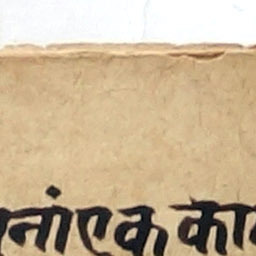 नांएक का